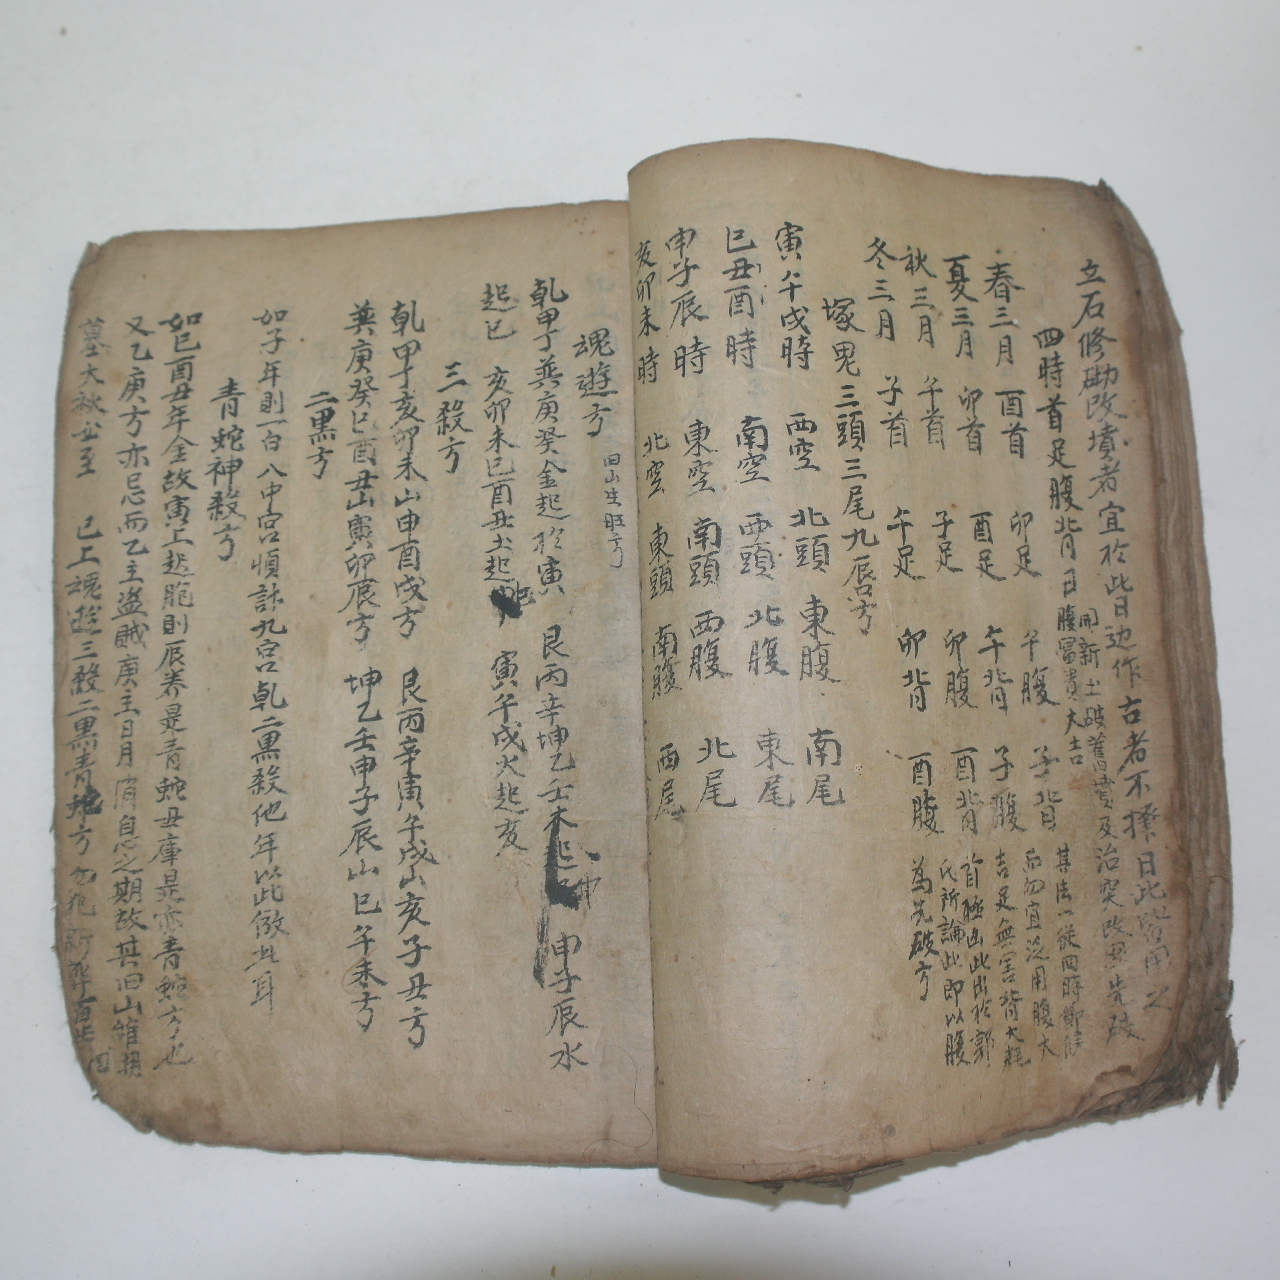 立石修砌改墳者宜於此日造作古者不擇日此皆用之
四時首足腹背日
開新土破舊墳及治突改思先破
腹富貴大吉
春三月 酉首 卯足 午腹 子背
夏三月 卯首 酉足 午背 子腹
秋三月 午首 子足 卯腹 酉背
冬三月 子首 午足 卯背 酉腹
其法一從四時節候
而勿宜泛用腹大
吉足無害背大耗
首極凶此出於郭
氏所論此即以腹
為先破方
塚鬼三頭三尾九唇方
寅午戌時 西空 北頭 東腹 南尾
巳丑酉時 南空 西頭 北腹 東尾
申子辰時 東空 南頭 西腹 北尾
亥卯未時 北空 東頭 南腹 西尾
魂遊方 旧山生旺方
乾甲丁巽庚癸金起於寅 艮丙辛坤乙壬木起申 申子辰水
起巳 亥卯未巳酉丑土起 寅午戌火起亥
三殺方
乾甲丁亥卯未山申酉戌方 艮丙辛寅午戌山亥子丑方
巽庚癸巳酉丑山寅卯辰方 坤乙壬申子辰山巳午未方
二黒方
如子年則一白入中宮順計九宮乾二黒殺他年以此倣此耳
青蛇神殺方
如巳酉丑年金故寅上起胞則辰養是青蛇丑庫是亦青蛇方也
又乙庚方亦忌而乙主盗賊庚主日月消息之期故其旧山雖
墓大秋 至 已上魂遊三殺二黒青蛇方勿犯新葬